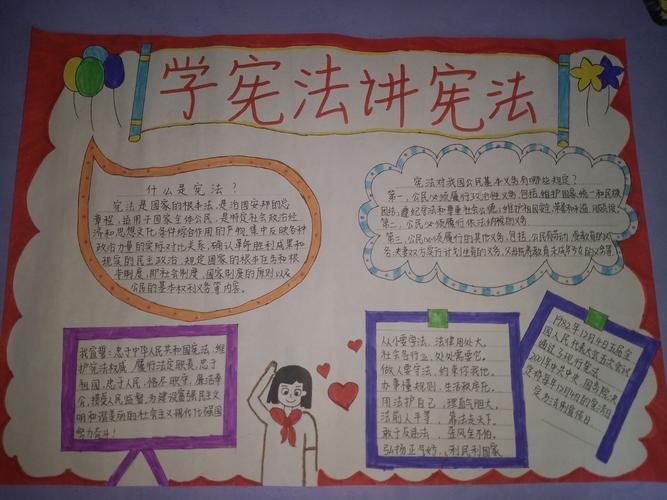 学宪法讲宪法
什么是宪法？
宪法是国家的根本法，是治国安邦的总
章程，适用于国家全体公民，是特定社会政治经
济和思想文化条件综合作用的产物，集中反映各种
政治力量的实际对比关系，确认革命胜利成果和
现实的民主政治，规定国家的根本任务和根
本制度，即社会制度，国家制度的原则以及
公民的基本权利义务等内容。
宪法对我国公民基本义务有哪些规定？
第一，公民必须履行政治性义务，包括，维护国家统一和民族
团结，遵纪守法和尊重社会公德；维护祖国安全、荣誉和利益，服兵役。
第二，公民必须履行依法纳税的义务
第三，公民必须履行的其他义务，包括，公民有劳动，受教育的义
务，夫妻双方实行计划生育的义务，父母抚养教育未成年子女的义务等
我宣誓：忠于中华人民共和国宪法，维
护宪法权威，履行法定职责，忠于
祖国，忠于人民，恪尽职守，廉洁奉
公，接受人民监督，为建设富强民主文
明和谐美丽的社会主义现代化强国
努力奋斗！
从小要学法，法律用处大。
社会各行业，处处需要它。
做人要守法，约束你我他。
办事懂规则，生活秩序化。
用法护自己，理直气胆大。
法前人平等，靠法走天下。
敢于反违法，歪风全不怕。
弘扬正气好，利民利国家
1982年12月4日五届全
国人民代表大会五次会议
通过了现行宪法。
2001年中共中央、国务院决
定将每年12月4日的宪法实
定为法制宣传日